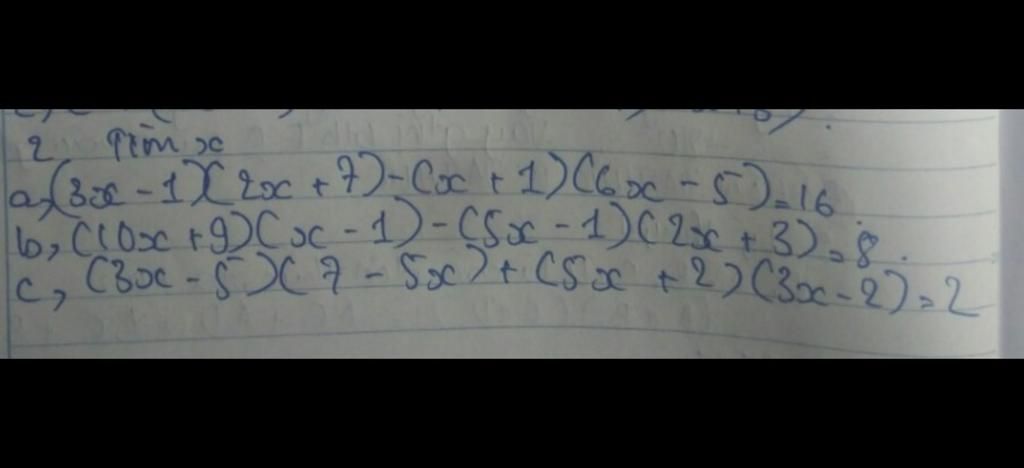 2 Tìm x
a, (3x - 1)(2x + 7) - (x + 1)(6x - 5) = 16
b, (10x + 9)(x - 1) - (5x - 1)(2x + 3) = 8.
c, (3x - 5)(7 - 5x) + (5x + 2)(3x - 2) = 2